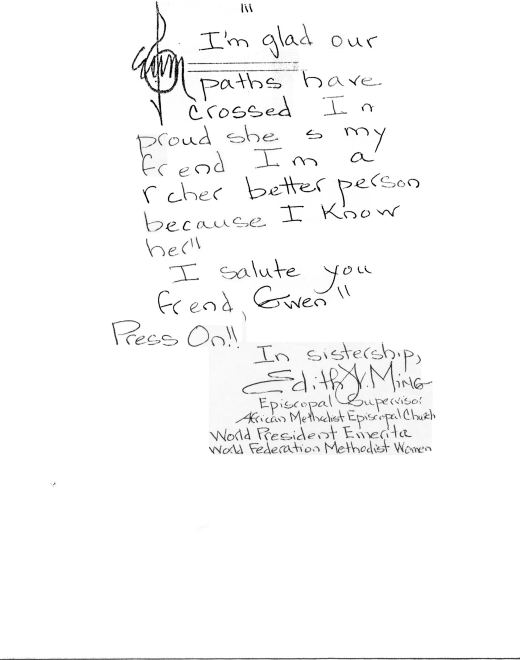 iii
I'm glad our
paths have
crossed I n
proud she s my
fr end I m a
r cher better person
because I know
her"
I salute you
fr end, Gwen"
Press On!!
In sistership,
Edith W. Ming
Episcopal Supervisor
African Methodist Episcopal Church
World President Emerita
World Federation Methodist Women